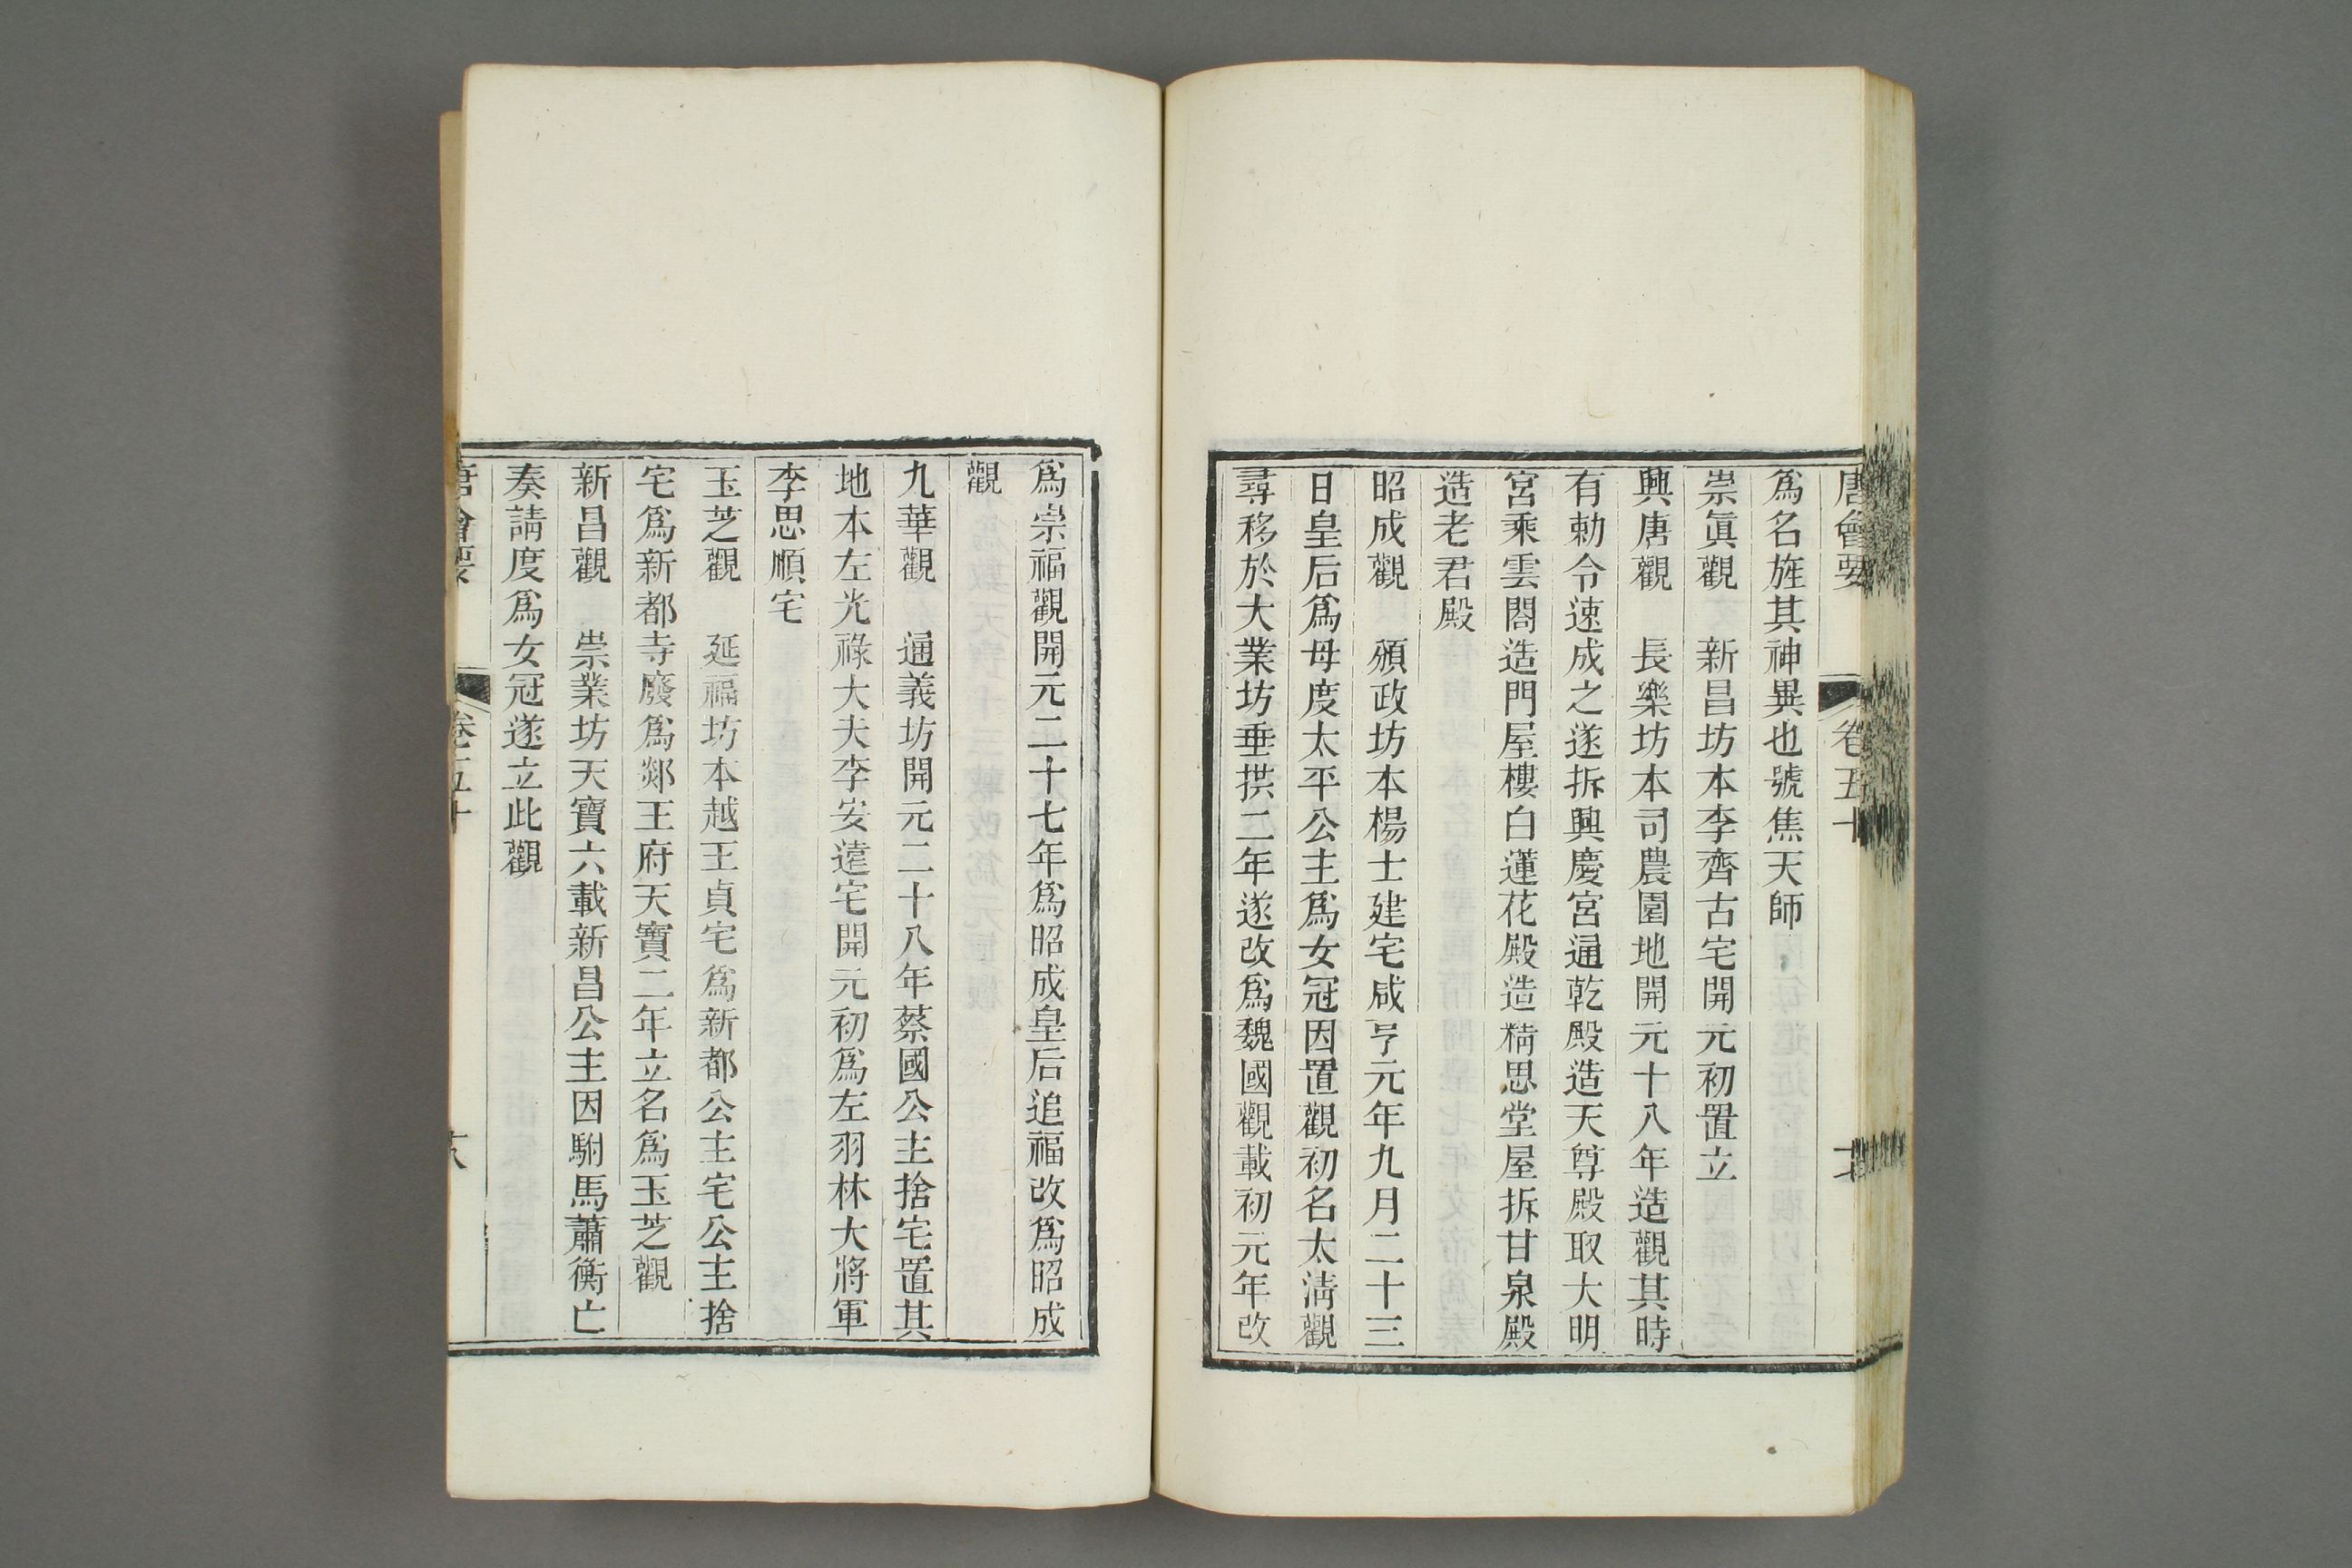 唐會要 卷五十 十七
爲名旌其神異也號焦天師
崇眞觀 新昌坊本李齊古宅開元初置立
興唐觀 長樂坊本司農園地開元十八年造觀其時
有勅令速成之遂拆興慶宮通乾殿造天尊殿取大明
宮乘雲閣造門屋樓白蓮花殿造精思堂屋拆甘泉殿
造老君殿
昭成觀 頒政坊本楊士建宅咸亨元年九月二十三
日皇后爲母度太平公主爲女冠因置觀初名太淸觀
尋移於大業坊垂拱二年遂改爲魏國觀載初元年改
爲崇福觀開元二十七年爲昭成皇后追福改爲昭成
觀
九華觀 通義坊開元二十八年蔡國公主捨宅置其
地本左光祿大夫李安遠宅開元初爲左羽林大將軍
李思順宅
玉芝觀 延福坊本越王貞宅爲新都公主宅公主捨
宅爲新都寺廢爲郯王府天寶二年立名爲玉芝觀
新昌觀 崇業坊天寶六載新昌公主因駙馬蕭衡亡
奏請度爲女冠遂立此觀
唐會要 卷五十 十八